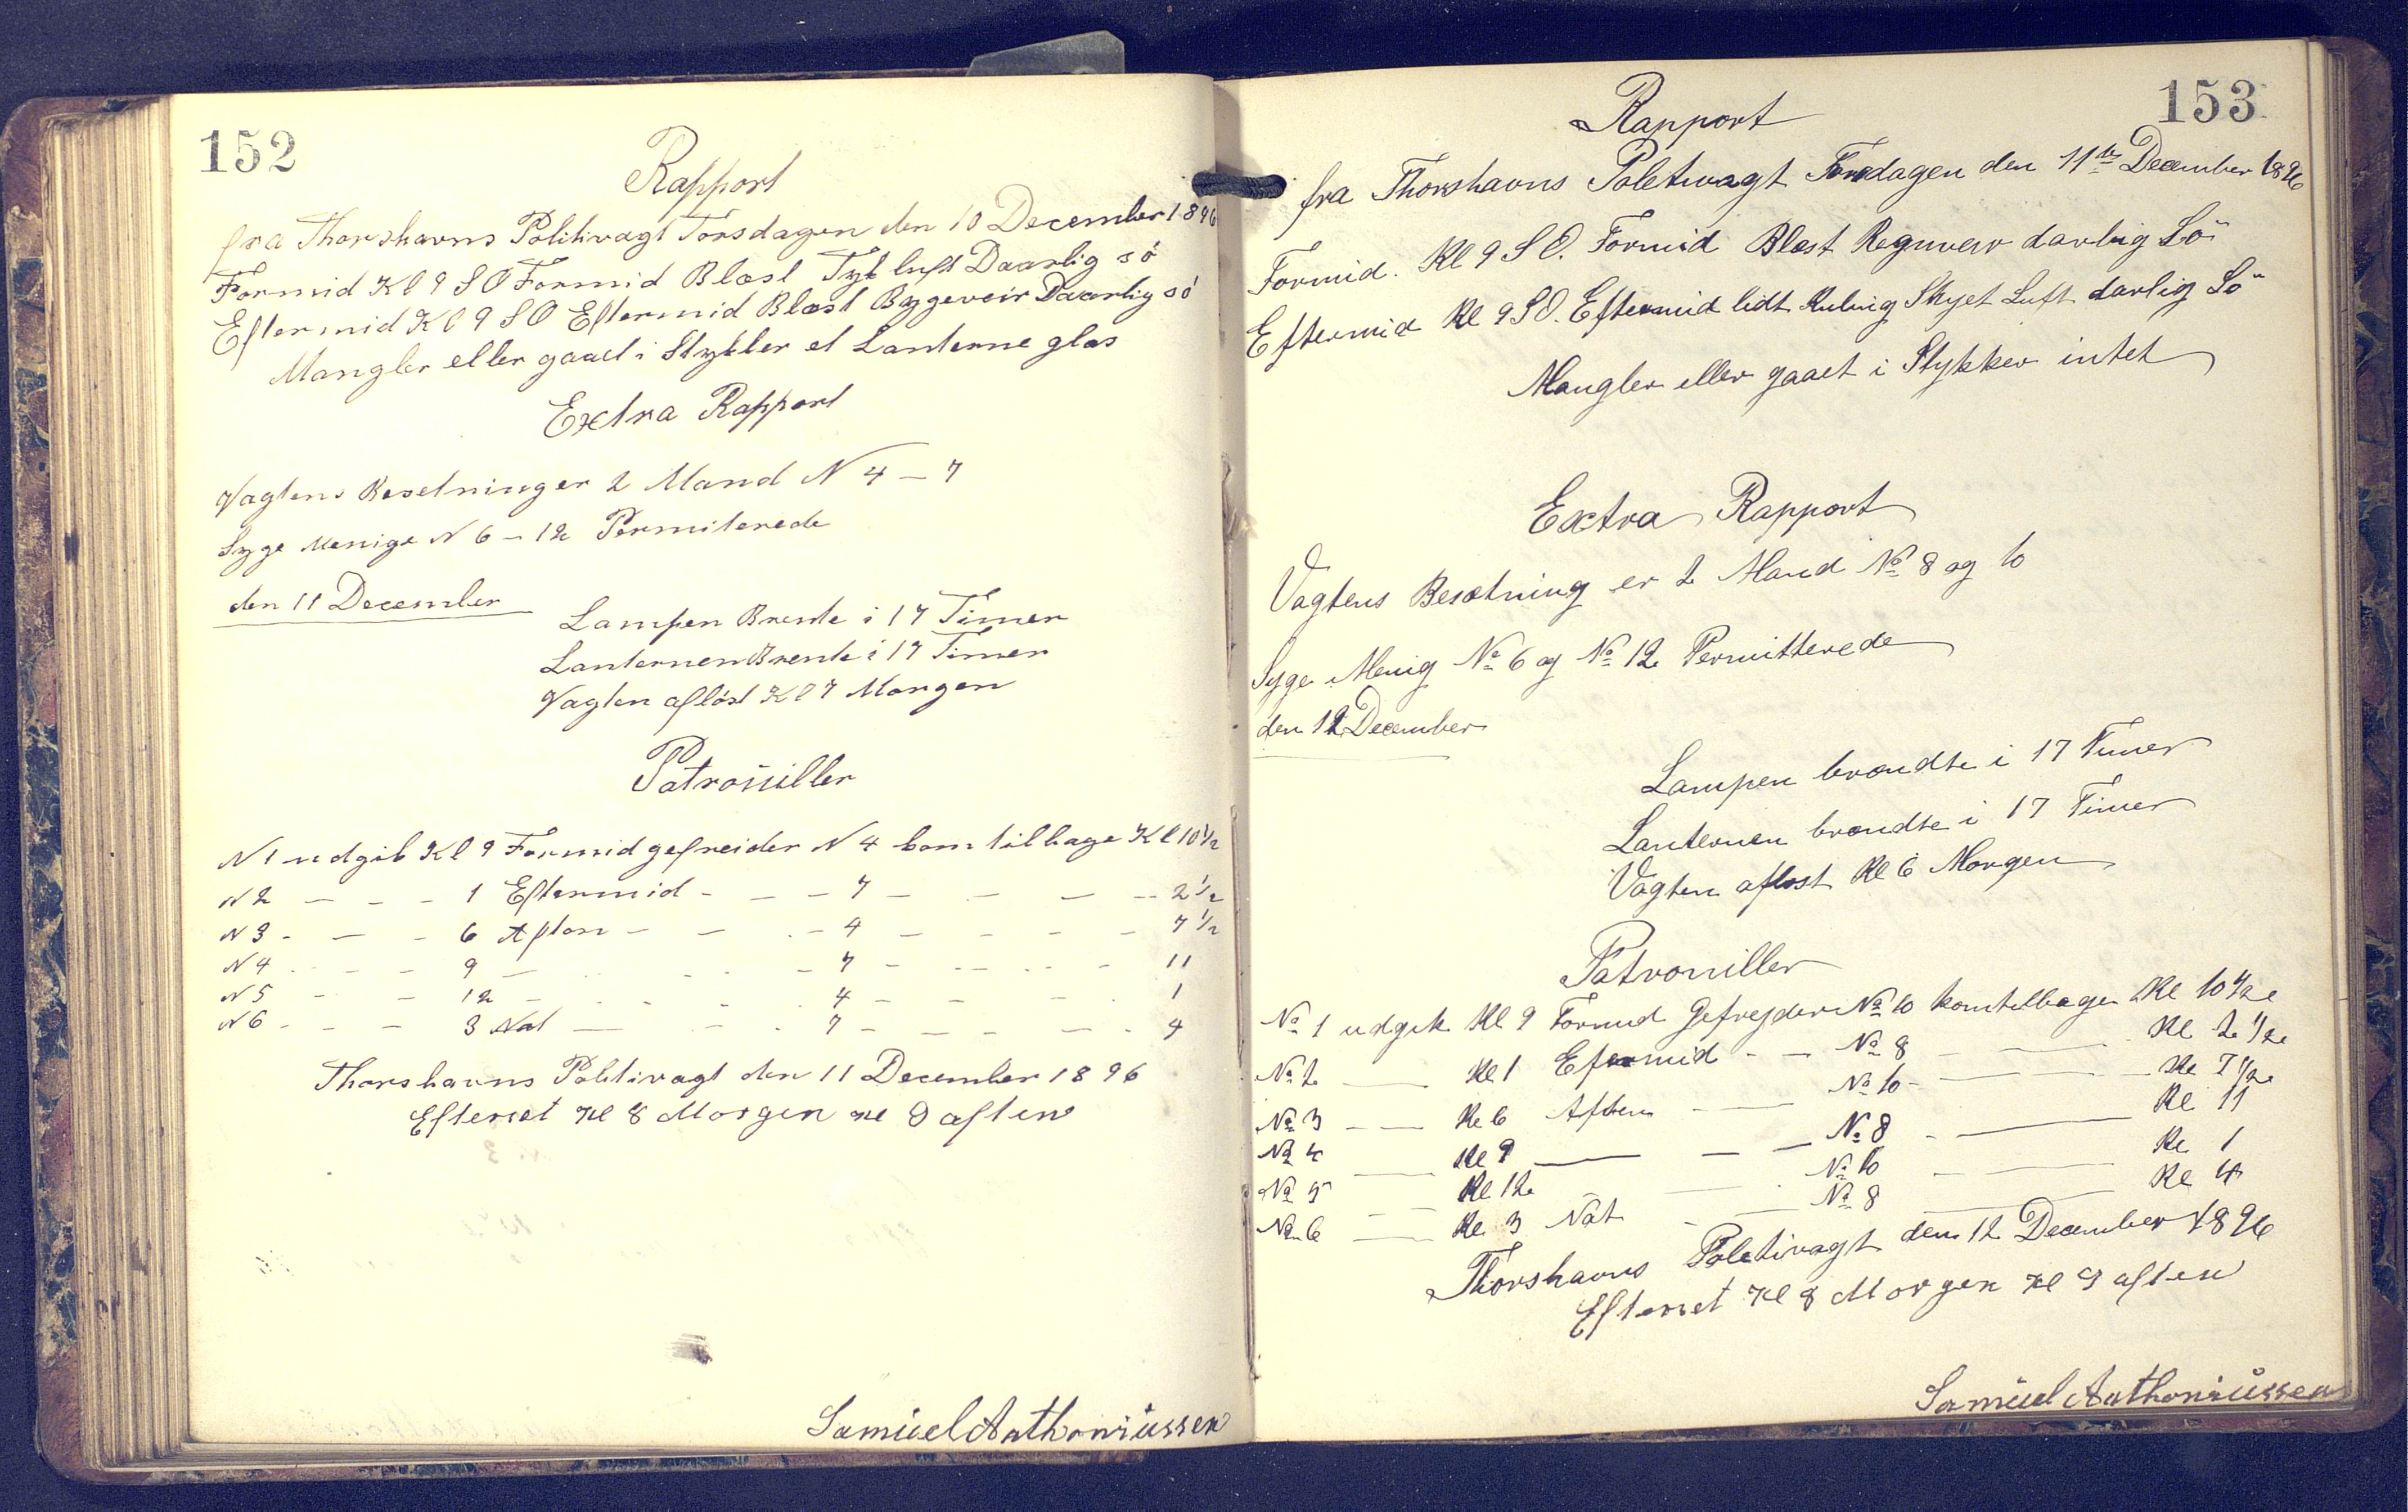 152
Rapport
fra Thorshavns Politivagt Torsdagen den 10 December 1896
Formid Kl 9 S O Formid Blæst Tyk luft Daarlig sö
Eftermid Kl 9 S O Eftermid Blæst Bygeveir Daarlig sö
Mangler eller gaaet i Stykker et Lanterne glas
Extra Rapport
Vagtens Besetninger 2 Mand N 4 – 7
Syge Menige N 6 – 12 Permiterede
den 11 December
Lampen Brente i 17 Timer
Lanternen Brente i 17 Timer
Vagten aflöst Kl 7 Morgen
Patrouiller
N 1 udgik Kl 9 Formid gefreider N 4 kom tilbage Kl 10 1/2
N 2 – – – 1 Eftermid – – – 7 – – – – 2 1/2
N 3 – – – 6 Aften – – – 4 – – – – 7 1/2
N 4 – – – 9 – – – – 7 – – – – 11
N 5 – – 12 – – – – 4 – – – 1
N 6 – – – 3 Nat – – – 7 – – – – 4
Thorshavns Politivagt den 11 December 1896
Efterset Kl 8 Morgen Kl 9 aften
Samuel Anthoniussen
153
Rapport
fra Thorshavns Poletivagt Fredagen den 11te December 1896
Formid. Kl 9 S O. Formid Blæst Regnveir darlig Sö
Eftermid Kl 9 S O. Eftermid lidt Kuling Skyet Luft darlig Sö
Mangler eller gaaet i Stykker intet
Extra Rapport
Vagtens Besætning er 2 Mand No 8 og 10
Syge Menig No 6 og No 12 Permitterede
den 12 December
Lampen brændte i 17 Timer
Lanternen brændte i 17 Timer
Vagten aflöst Kl 6 Morgen
Patrouiller
No 1 udgik Kl 9 Formid Gefrejder No 10 kom tilbage Kl 10 1/2
No 2 — Kl 1 Efermid – – No 8 – — Kl 2 1/2
No 3 – — Kl 6 Aften — No 10 – — Kl 7 1/2
No 4 — Kl 9 — – – No 8 – — Kl 11
No 5 – – Kl 12 – — No 10 – — Kl 1
No 6 — Kl 3 Nat – — No 8 — Kl 4
Thorshavns Poletivagt den 12 December 1896
Efterset Kl 8 Morgen Kl 9 aften
Samuel Anthoniussen